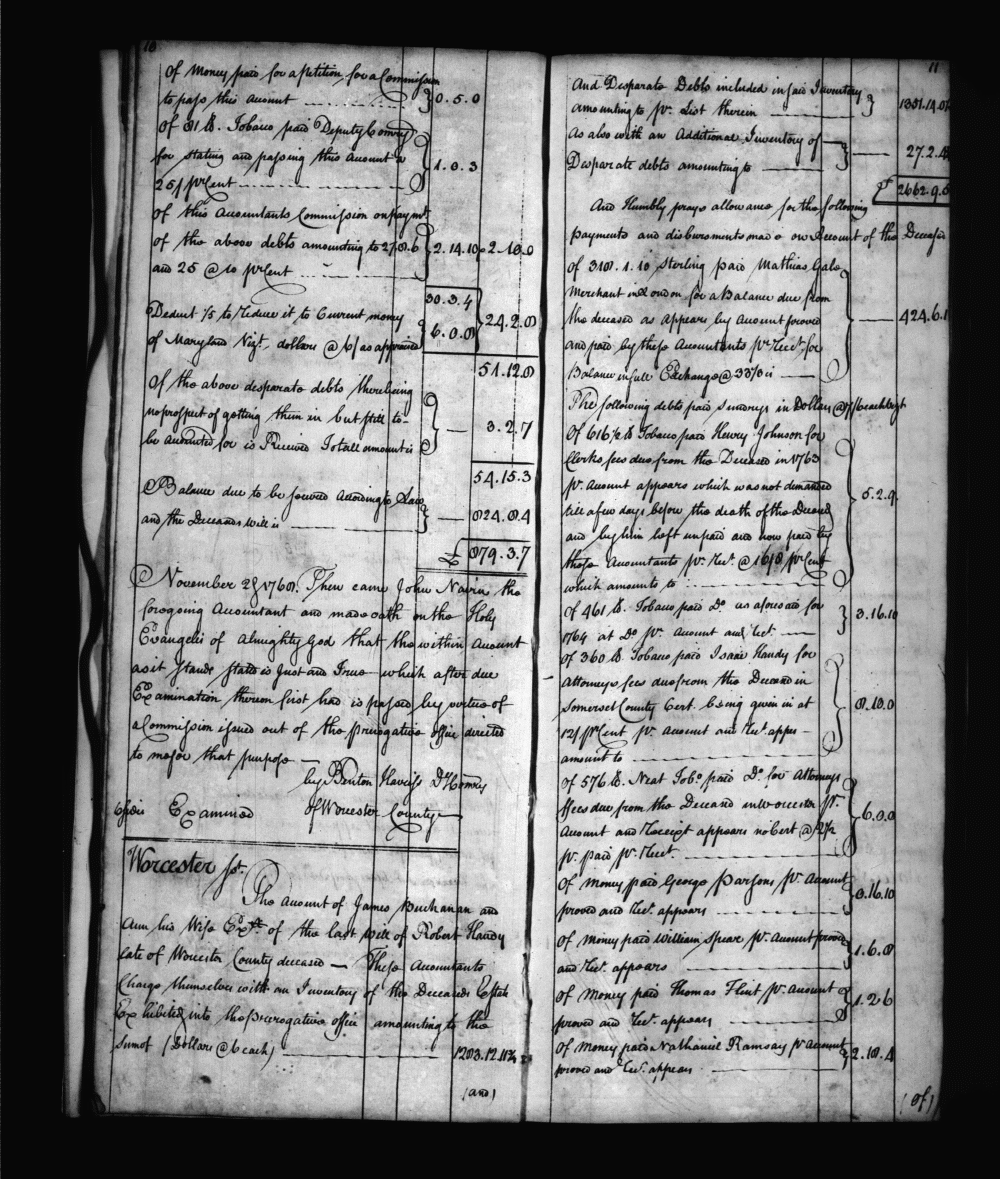 10
Of Money paid for a Petition for a Commission
to pass this Account 0.5.0
Of 81 lb. Tobacco paid Deputy Comry
for stating and passing this Account a
25/ pr Cent 1.0.3
Of this Accountants Commission on paymt.
of the above debts amounting to 27.8.6
and 25 @ 10 pr Cent 2.14.10 2.10.0
30.3.4
Deduct 1/5 to Reduce it to Current money
of Maryland Vizt. dollars @ 6/ as appraised 6.0.8 24.2.8
51.12.8
Of the above desparate debts there being
no prospect of getting them in but still to
be accounted for is Received Total amount is 3.2.7
54.15.3
Balance due to be secured According to Law
and the Deceaseds will is 824.8.4
£ 879.3.7
November 28 1768. Then came John Navin the
foregoing Accountant and made oath on the Holy
Evangelis of Almighty God that the within Account
as it Stands stated is Just and True which after due
Examination thereon first had is passed by vertue of
a Commission issued out of the prerogative office directed
to me for that purpose
by Benton Harris Dy Comry
Examined of Worcester County
Worcester ss.
The Account of James Buchanan and
Ann his Wife Exx. of the last will of Robert Handy
late of Worcester County deceased — These Accountants
Charge themselves with an Inventory of the Deceaseds Estate
Exhibited into the prerogative office amounting to the
sum of (Dollars @ 6 each) 1283.12.11¾
(and)
11
And Desparate Debts included in said Inventory
amounting to pr. List therein 1351.14.0
As also with an Additional Inventory of
Desparate debts amounting to 27.2.
£ 2662.9.
And Humbly prays allowance for the following
payments and disbursments made on Account of the Deceased
Of 318.1.10 Sterling paid Mathias Gale
Merchant in London for a Balance due from
the deceased as appears by Account proved
and paid by these Accountants pr. Rect. for
Balance in full Exchange @ 33⅓ is 424.6.1
The following debts paid Sundrys in Dollars @ 7/6 each Vizt
Of 616½ lb Tobacco paid Henry Johnson for
Clerks fees due from the Deceased in 1763
pr. Account appears which was not demanded
till a few days before the death of the Deceased
and by him left unpaid and now paid by
these Accountants pr. Rect. @ 16/8 pr Cent
which amounts to 5.2.9
Of 461 lb. Tobacco paid Do. as aforesaid for
1764 at Do pr. Account and Rect. 3.16.10
Of 360 lb Tobacco paid Isaac Handy for
Attorneys fees due from the Deceased in
Somerset County Cert. being given in at
12/ pr Cent pr. Account and Rect. appears
amount to 8.10.0
Of 576 lb. Neat Tobo. paid Do. for Attorneys
ffees due from the Deceased in Worcester pr.
Account and Receipt appears no Cert @ 2½
pr. paid pr. Rect. 6.0.0
Of Money paid George Parsons pr. Account
proved and Rect. appears 0.16.10
Of money paid William Spear pr. Account proved
and Rect. appears 1.6.8
Of Money paid Thomas Flint pr. Account
proved and Rect. appears 1.2.6
Of Money paid Nathaniel Ramsay pr Account
proved and Rect. appears 2.18.4
(Of)